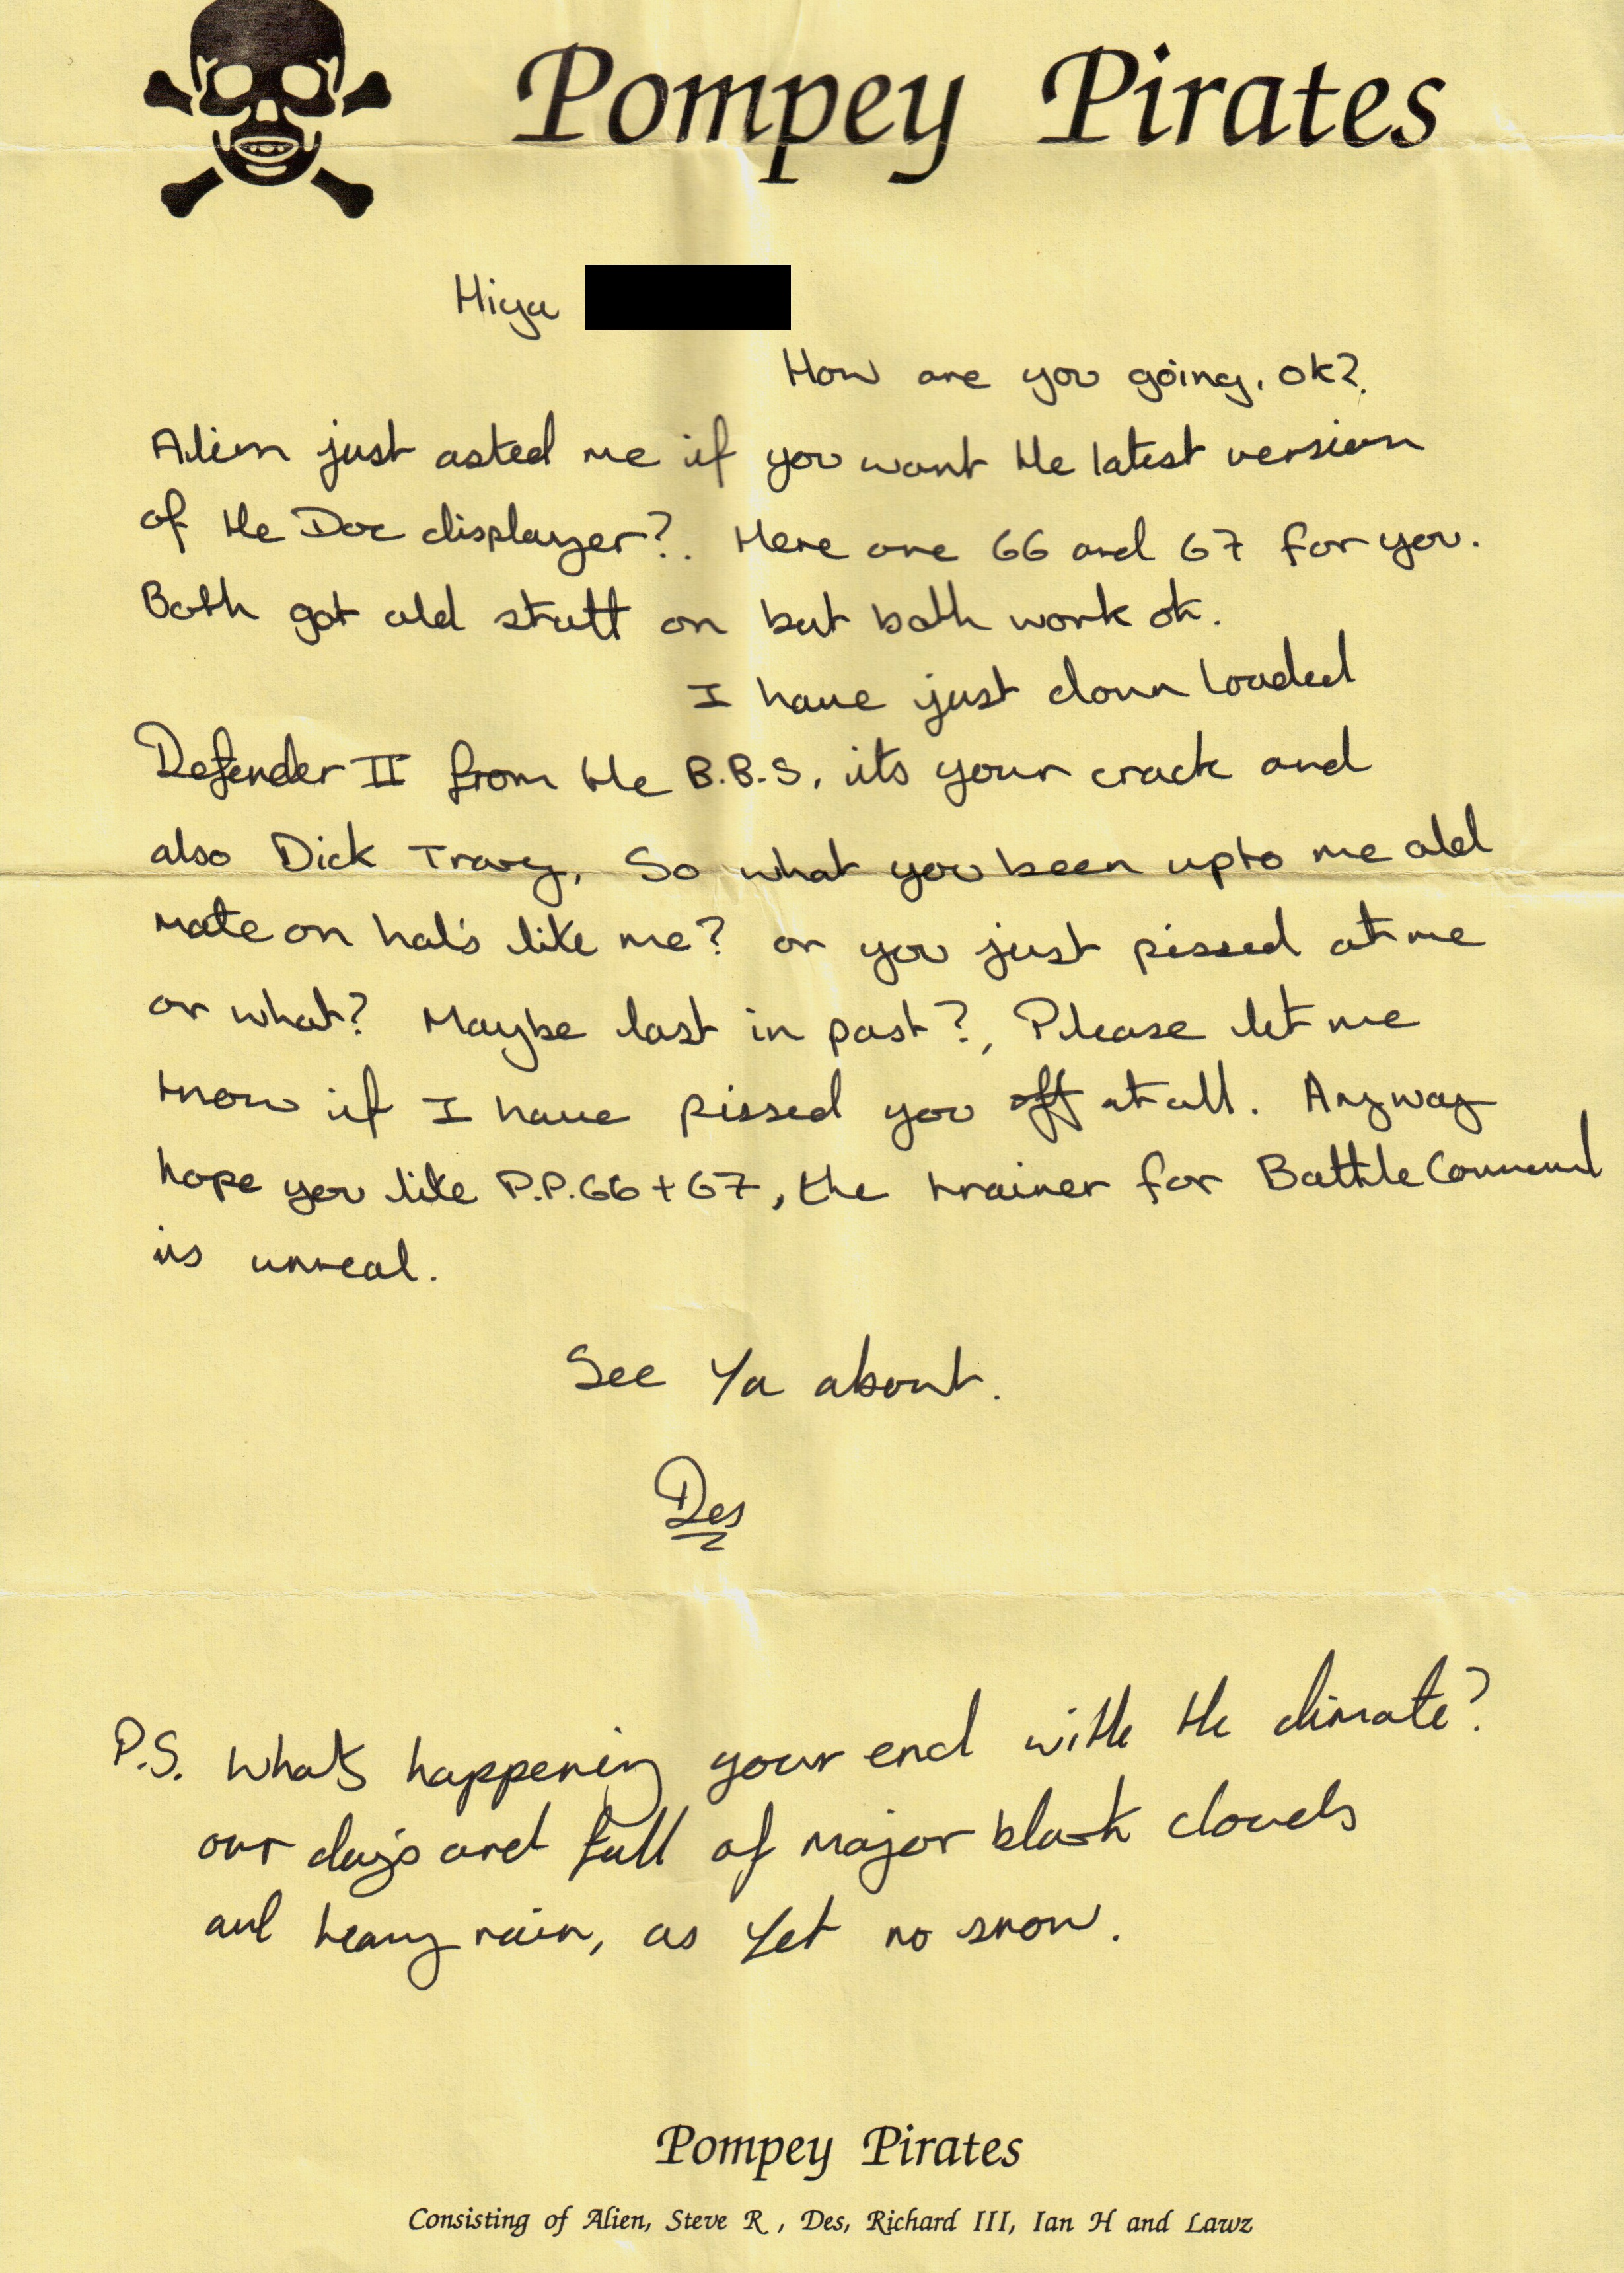 Pompey Pirates
Hiya
How are you going, ok?
Alien just asked me if you want the latest version
of the Doc displayer?. Here are 66 and 67 for you.
Both got old stuff on but both work ok.
I have just down loaded
Defender II from the B.B.S, its your crack and
also Dick Tracy, So what you been upto me old
mate on hol's like me? or you just pissed at me
or what? Maybe lost in post?, Please let me
know if I have pissed you off at all. Anyway
hope you like P.P.66+67, the trainer for Battle Command
is unreal.
See Ya about.
Des
P.S. Whats happening your end with the climate?
our day's and full of major black clouds
and heavy rain, as Yet no snow.
Pompey Pirates
Consisting of Alien, Steve R , Des, Richard III, Ian H and Lawz